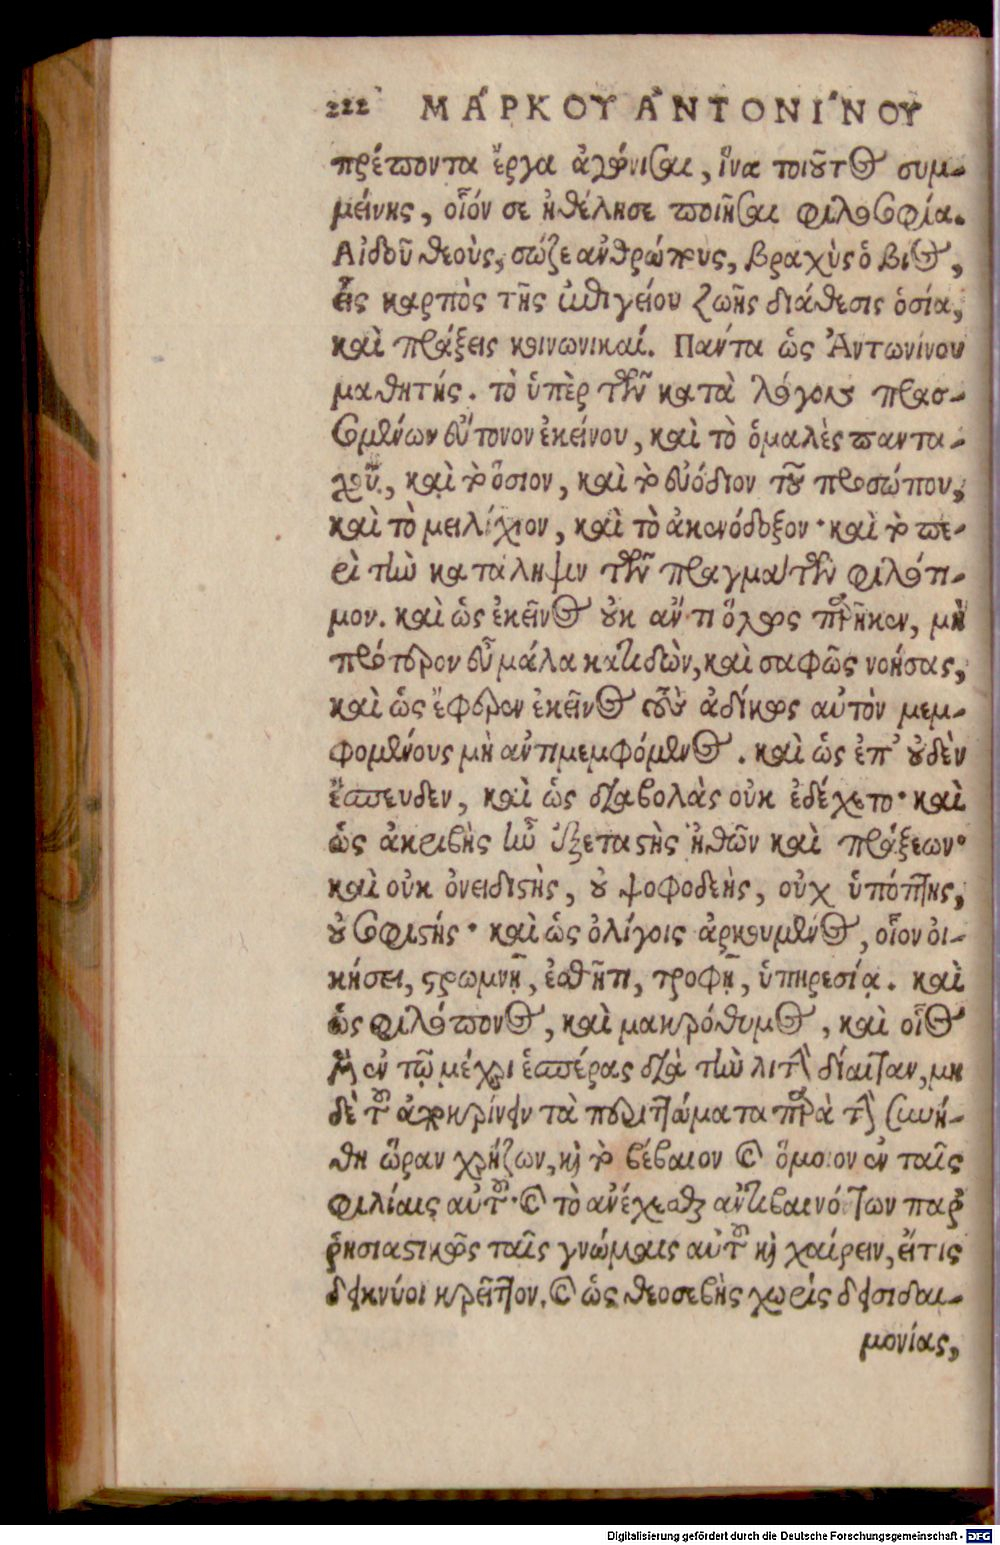 222 ΜΆΡΚΟΥ ἈΝΤΟΝΊΝΟΥ
πρέποντα ἔργα ἀγώνισαι, ἵνα τοιοῦτος συμ-
μείνῃς, οἷόν σε ἠθέλησε ποιῆσαι φιλοσοφία.
Αἰδοῦ θεοὺς, σώζε ἀνθρώπους, βραχὺς ὁ βίος,
εἷς καρπὸς τῆς ἐπιγείου ζωῆς διάθεσις ὁσία,
καὶ πράξεις κοινωνικαί. Πάντα ὡς Ἀντωνίνου
μαθητής. τὸ ὑπὲρ τῶν κατὰ λόγον πρασ-
σομένων εὔτονον ἐκείνου, καὶ τὸ ὁμαλὲς παντα-
χοῦ, καὶ τὸ ὅσιον, καὶ τὸ εὐόδιον τοῦ προσώπου,
καὶ τὸ μειλίχιον, καὶ τὸ ἀκενόδοξον· καὶ τὸ πε-
ρὶ τὴν κατάληψιν τῶν πραγμάτων φιλότι-
μον. καὶ ὡς ἐκεῖνος οὐκ ἄν τι ὅλως παρῆκεν, μὴ
πρότερον εὖ μάλα κατιδὼν, καὶ σαφῶς νοήσας,
καὶ ὡς ἔφερεν ἐκεῖνος τοὺς ἀδίκως αὐτὸν μεμ-
φομένους μὴ ἀντιμεμφόμενος. καὶ ὡς ἐπ' οὐδὲν
ἔσπευδεν, καὶ ὡς διαβολὰς οὐκ ἐδέχετο· καὶ
ὡς ἀκριβὴς ἦν ἐξεταστὴς ἠθῶν καὶ πράξεων·
καὶ οὐκ ὀνειδιστὴς, οὐ ψοφοδεὴς, οὐχ ὑπόπτης,
οὐ σοφιστής· καὶ ὡς ὀλίγοις ἀρκούμενος, οἷον οἰ-
κήσει, στρωμνῇ, ἐσθῆτι, τροφῇ, ὑπηρεσίᾳ. καὶ
ὡς φιλόπονος, καὶ μακρόθυμος, καὶ οἷος
ἦν ἐν τῷ μέχρι ἑσπέρας διὰ τὴν λιτὴν δίαιταν, μη
δὲ τοῦ ἀποκρίνειν τὰ περιττώματα παρὰ τὴν συνή-
θη ὥραν χρῄζων, καὶ τὸ βέβαιον καὶ ὅμοιον ἐν ταῖς
φιλίαις αὐτοῦ· καὶ τὸ ἀνέχεσθαι ἀντιβαινόντων παρ
ῥησιαστικῶς ταῖς γνώμαις αὐτοῦ καὶ χαίρειν, εἴ τις
δεικνύοι κρεῖττον. καὶ ὡς θεοσεβὴς χωρὶς δεισιδαι-
μονίας,
Digitalisierung gefördert durch die Deutsche Forschungsgemeinschaft - DFG